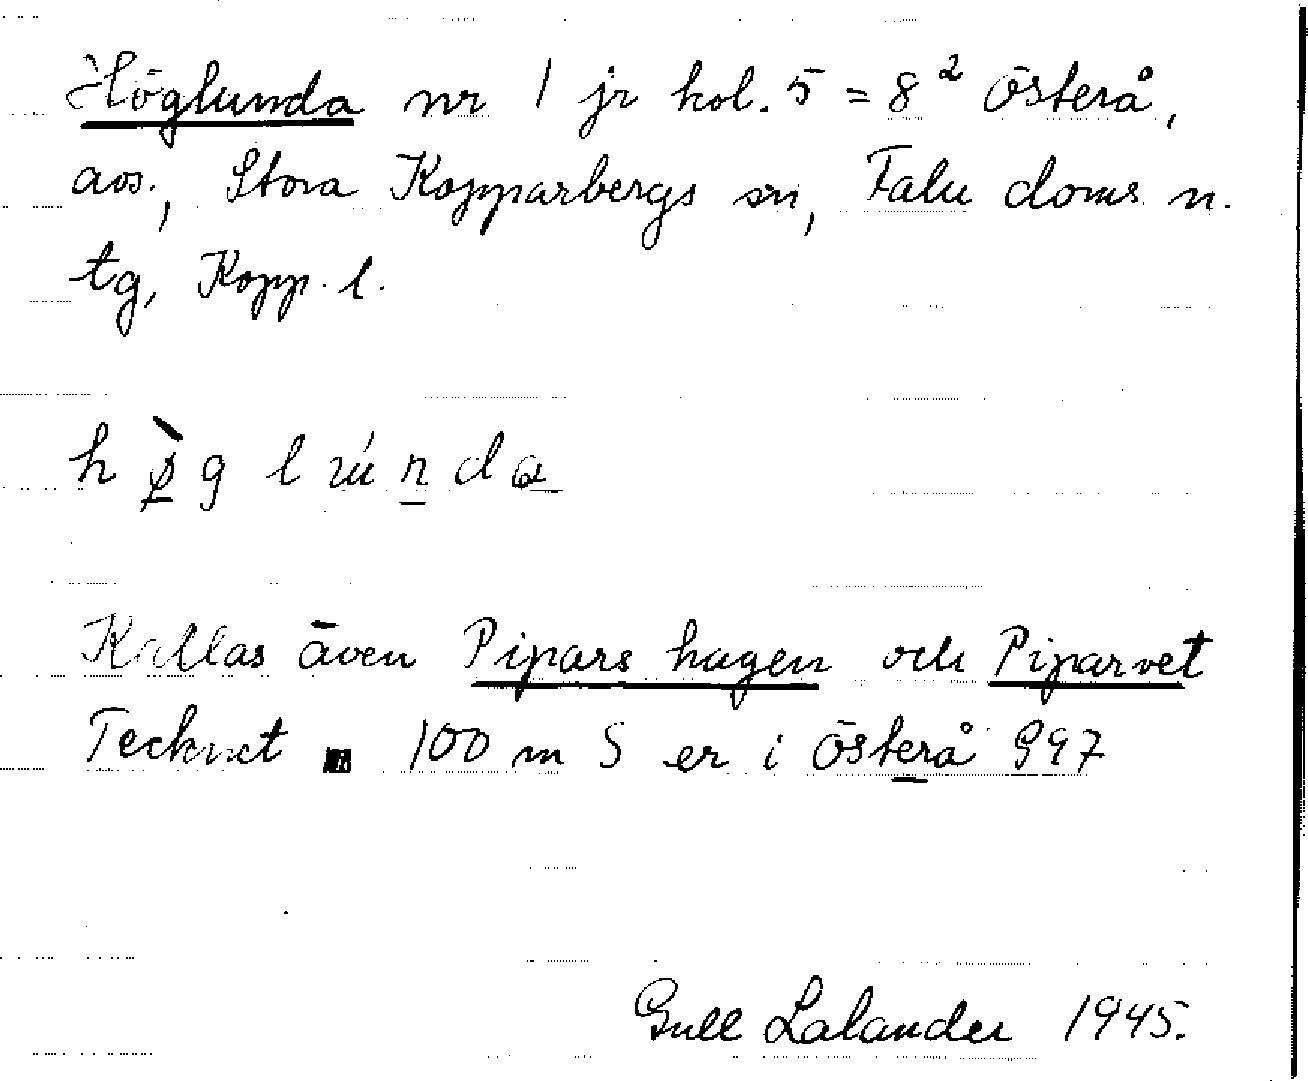 Höglunda nr 1 jr kol. 5 = 8² Österå,
avs., Stora Kopparbergs sn, Falu doms n.
tg, Kopp. l.
hø̀glúnda
Kallas även Pipars hagen och Piparvet
Tecknet ■ 100 m S er i Österå 997
Gull Lalander 1945.